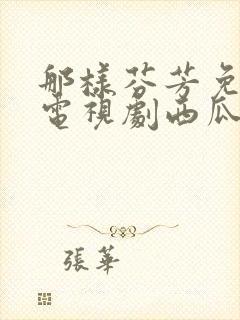 那樣芬芳免
電視劇西瓜
張華